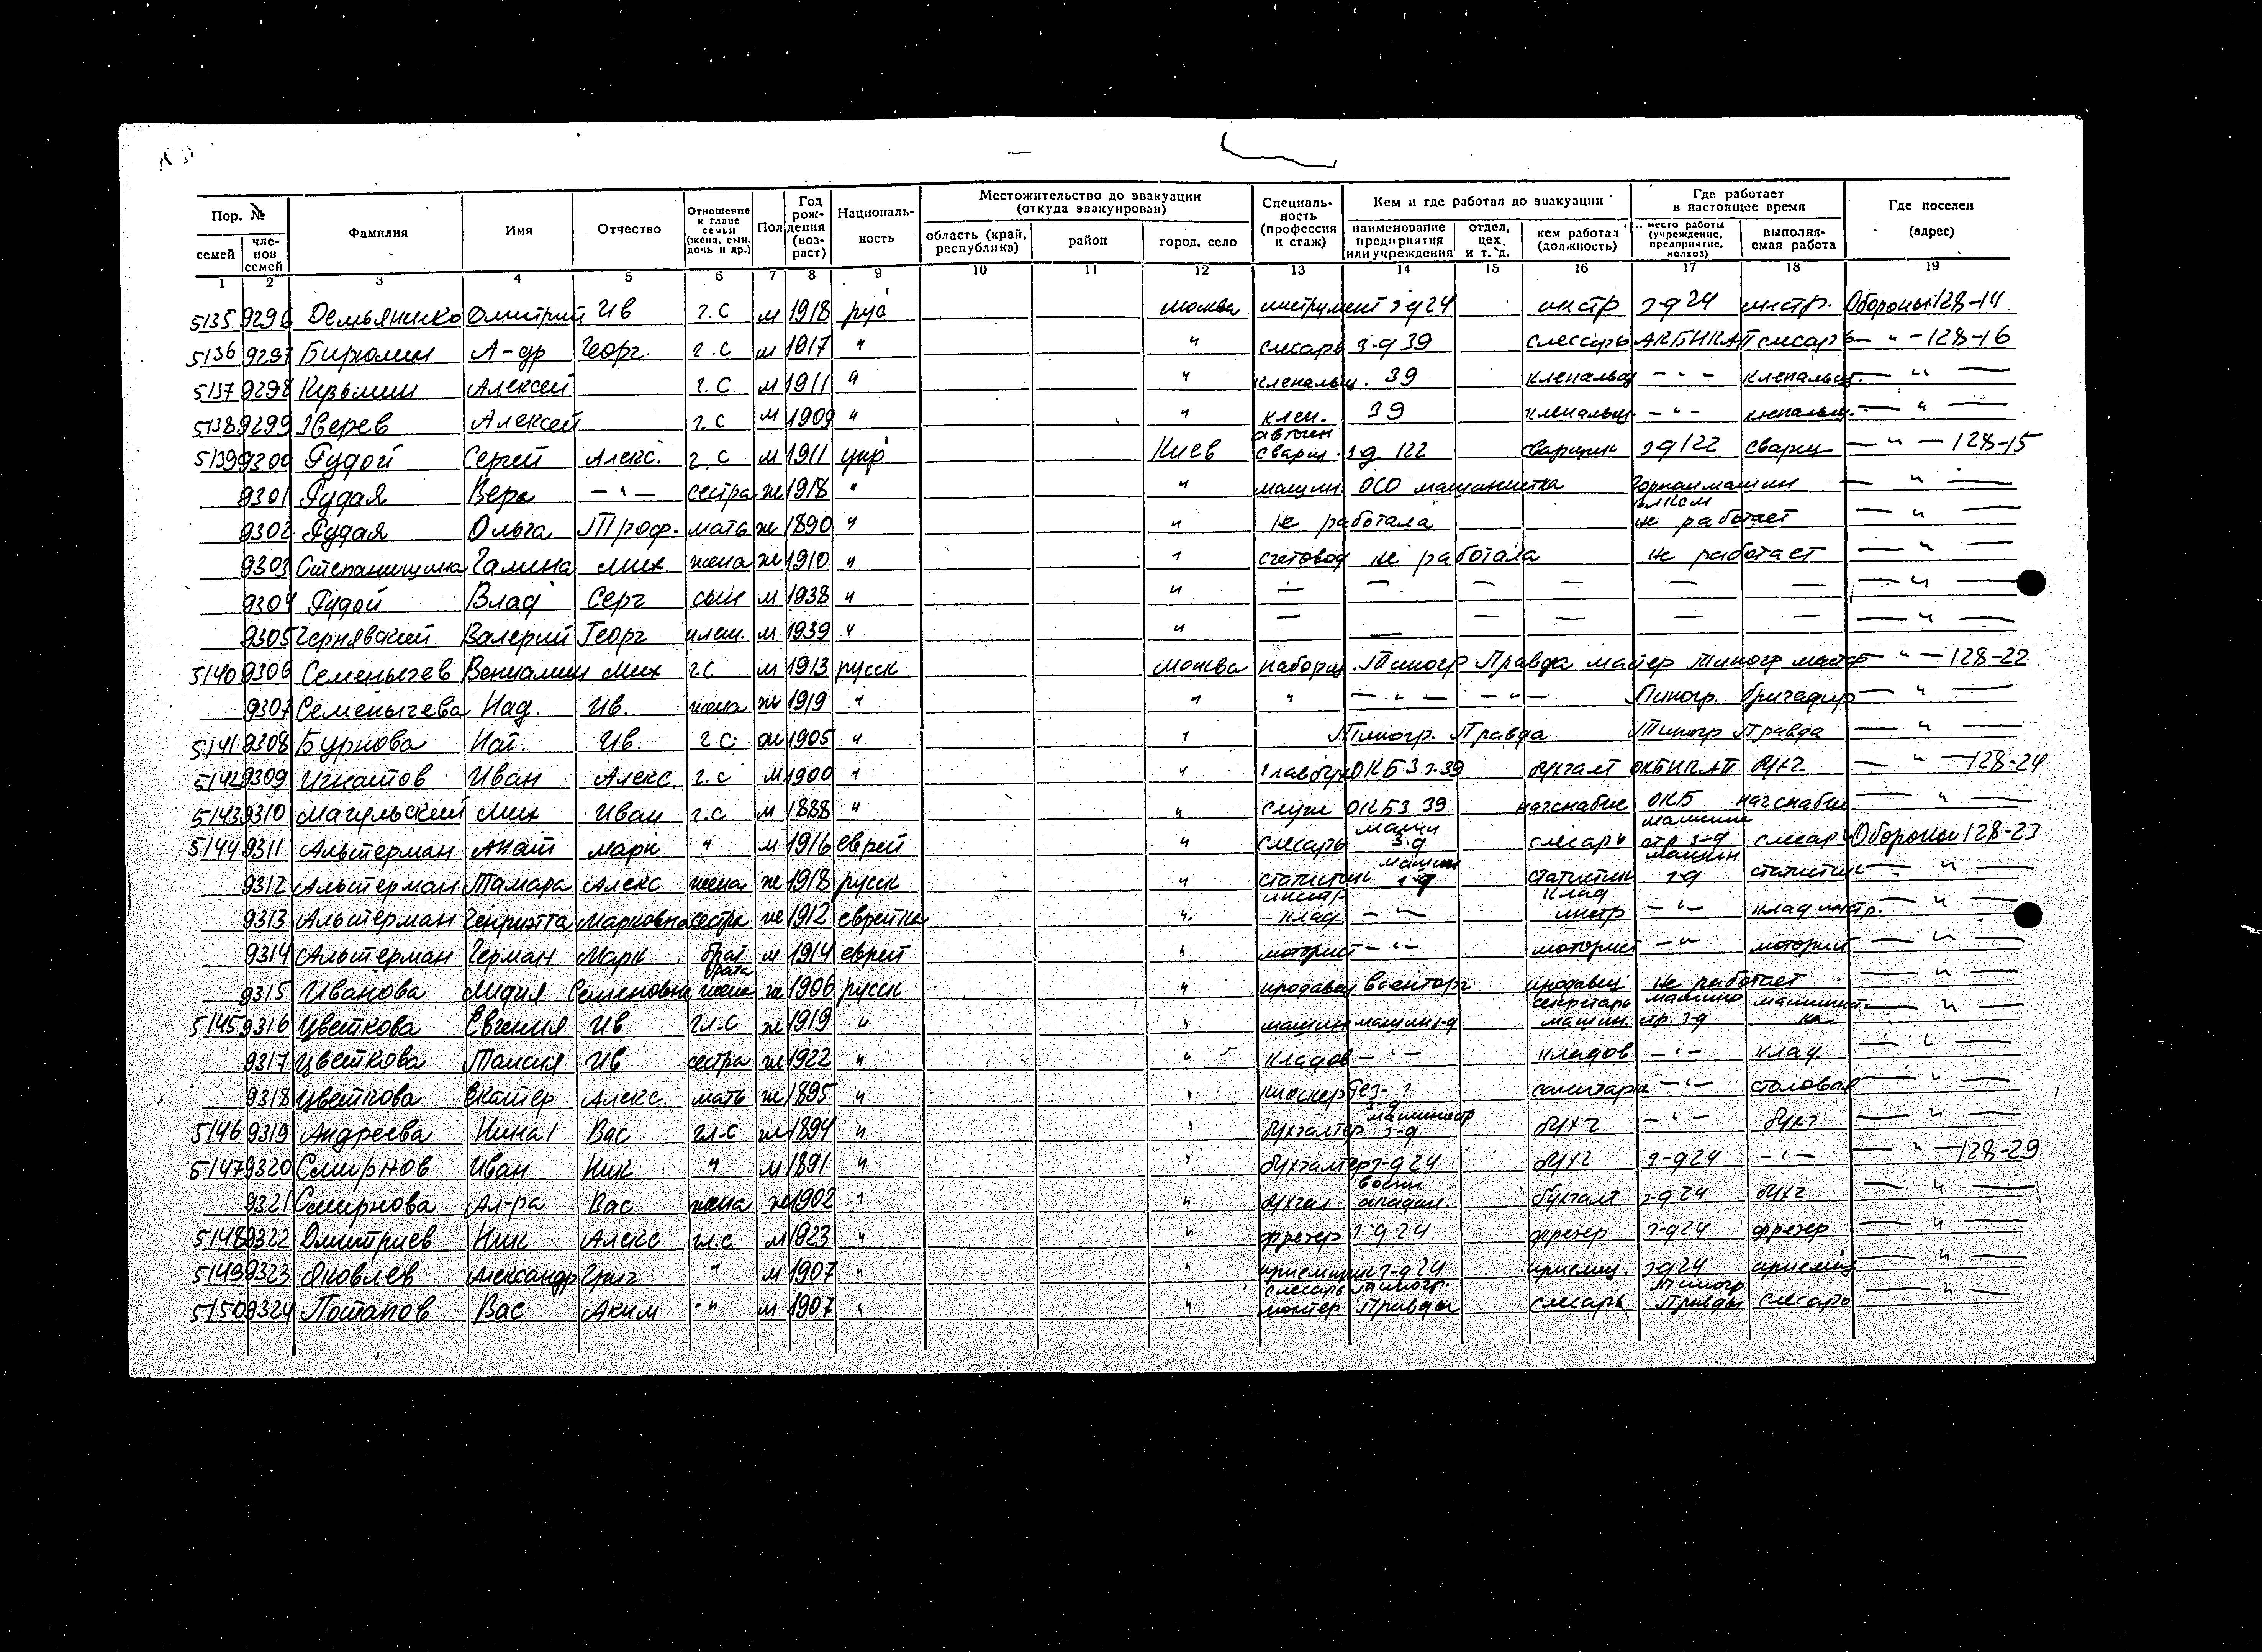 Пор. № Фамилия Имя Отчество Отношение к главе семьи (жена, сын, дочь и др.) Пол Год рождения (возраст) Националь-ность Местожительство до эвакуации (откуда эвакуирован) Специаль-ность (профессия и стаж) Кем и где работал до эвакуации Где работает в настоящее время Где поселен (адрес)
семей чле-нов семей область (край, республика) район город, село наименование предприятия или учреждения отдел, цех. и т. д. кем работал (должность) место работы (учреждение, предприятие, колхоз) выполня-емая работа
1 2 3 4 5 6 7 8 9 10 11 12 13 14 15 16 17 18 19
5135 9296 Демьяненко Дмитрий Ив г.С м 1918 рус Москва инструмент з-д 24 инстр з-д 24 инстр. Обороны 128-14
5136 9297 Бирюлин А-др Георг. г.С м 1917 " " слесарь з-д 39 слессарь АКБНКАП слесарь — " — 128-16
5137 9298 Кузьмин Алексей г.С. м 1911 " " клепальщ. 39 клепальщ — " — клепальщ. — " —
5138 9299 Зверев Алексей г.С м 1909 " " клеп. 39 клепальщ — " — клепальщ. — " —
5139 9300 Рудой Сергей Алекс. г.С м 1911 укр Киев автоген сварщ. з-д 122 сварщик з-д 122 сварщ — " — 128-15
9301 Рудая Вера — " — сестра ж 1918 " " машин. ОСО машинистка ВЛКСМ — " —
9302 Рудая Ольга Троф. мать ж 1890 " " не работала не работает — " —
9303 Степанищина Галина Мих. жена ж 1910 " " счетовод не работала не работает — " —
9304 Рудой Влад Серг сын м 1938 " " — — — — — — — " —
9305 Чернявский Валерий Георг плем. м 1939 " " — — — — — — — " —
5140 9306 Семенычев Вениамин Мих г.С м 1913 русск Москва наборщ. Типогр Правда мастер Типогр мастер — " — 128-22
9307 Семенычева Над. Ив. жена ж 1919 " " " — " — — " — Типогр. бригадир — " —
5141 9308 Бурнова Нат. Ив. г.С. ж 1905 " " Типогр. Правда Типогр Правда — " —
5142 9309 Игнатов Иван Алекс. г.с м 1900 " " главбух ОКБ 3 з-39 бухгалт ОКБНКАП бухг. — " — 128-24
5143 9310 Магульский Мих Иван г.С м 1888 " " служ ОКБ 3 39 начснабже ОКБ начснабже — " —
5144 9311 Альтерман Анат Марк " м 1916 еврей " слесарь маши з-д слесарь машино стр. з-д слесарь Обороны 128-23
9312 Альтерман Тамара Алекс жена ж 1918 русск " статистик машин з-д статистик машин з-д статистик — " —
9313 Альтерман Генриэтта Марковна сестра ж 1912 еврейка " инстр клад — " — клад инстр — " — клад инстр. — " —
9314 Альтерман Герман Марк брат м 1914 еврей " моторист — " — моторист — " — моторист — " —
9315 Иванова Лидия Семеновна брата жена ж 1906 русск " продавец Военторг продавец не работает — " —
5145 9316 Цветкова Евгения Ив гл.С ж 1919 " " машин машин з-д секретарь машин. машино стр. з-д машинист-ка — " —
9317 Цветкова Таисия Ив сестра ж 1922 " " кладов — " — кладов — " — клад — " —
9318 Цветкова Екатер Алекс мать ж 1895 " " киоскер санитарка — " — столовая — " —
5146 9319 Андреева Нина Вас гл.С ж 1894 " " бухгалтер машиностр з-д бухг — " — бухг — " —
5147 9320 Смирнов Иван Ник " м 1891 " " бухгалтер з-д 24 бухг з-д 24 — " — — " — 128-29
9321 Смирнова Ал-ра Вас жена ж 1902 " " бухгал военн академ. бухгалт з-д 24 бухг — " —
5148 9322 Дмитриев Ник Алекс гл.С м 1923 " " фрезер з-д 24 фрезер з-д 24 фрезер — " —
5149 9323 Яковлев Александр Григ " м 1907 " " приемщик з-д 24 приемщ. з-д 24 приемщ — " —
5150 9324 Потапов Вас Аким " м 1907 " " слесарь монтер типогр. Правды слесарь Типогр Правды слесарь — " —